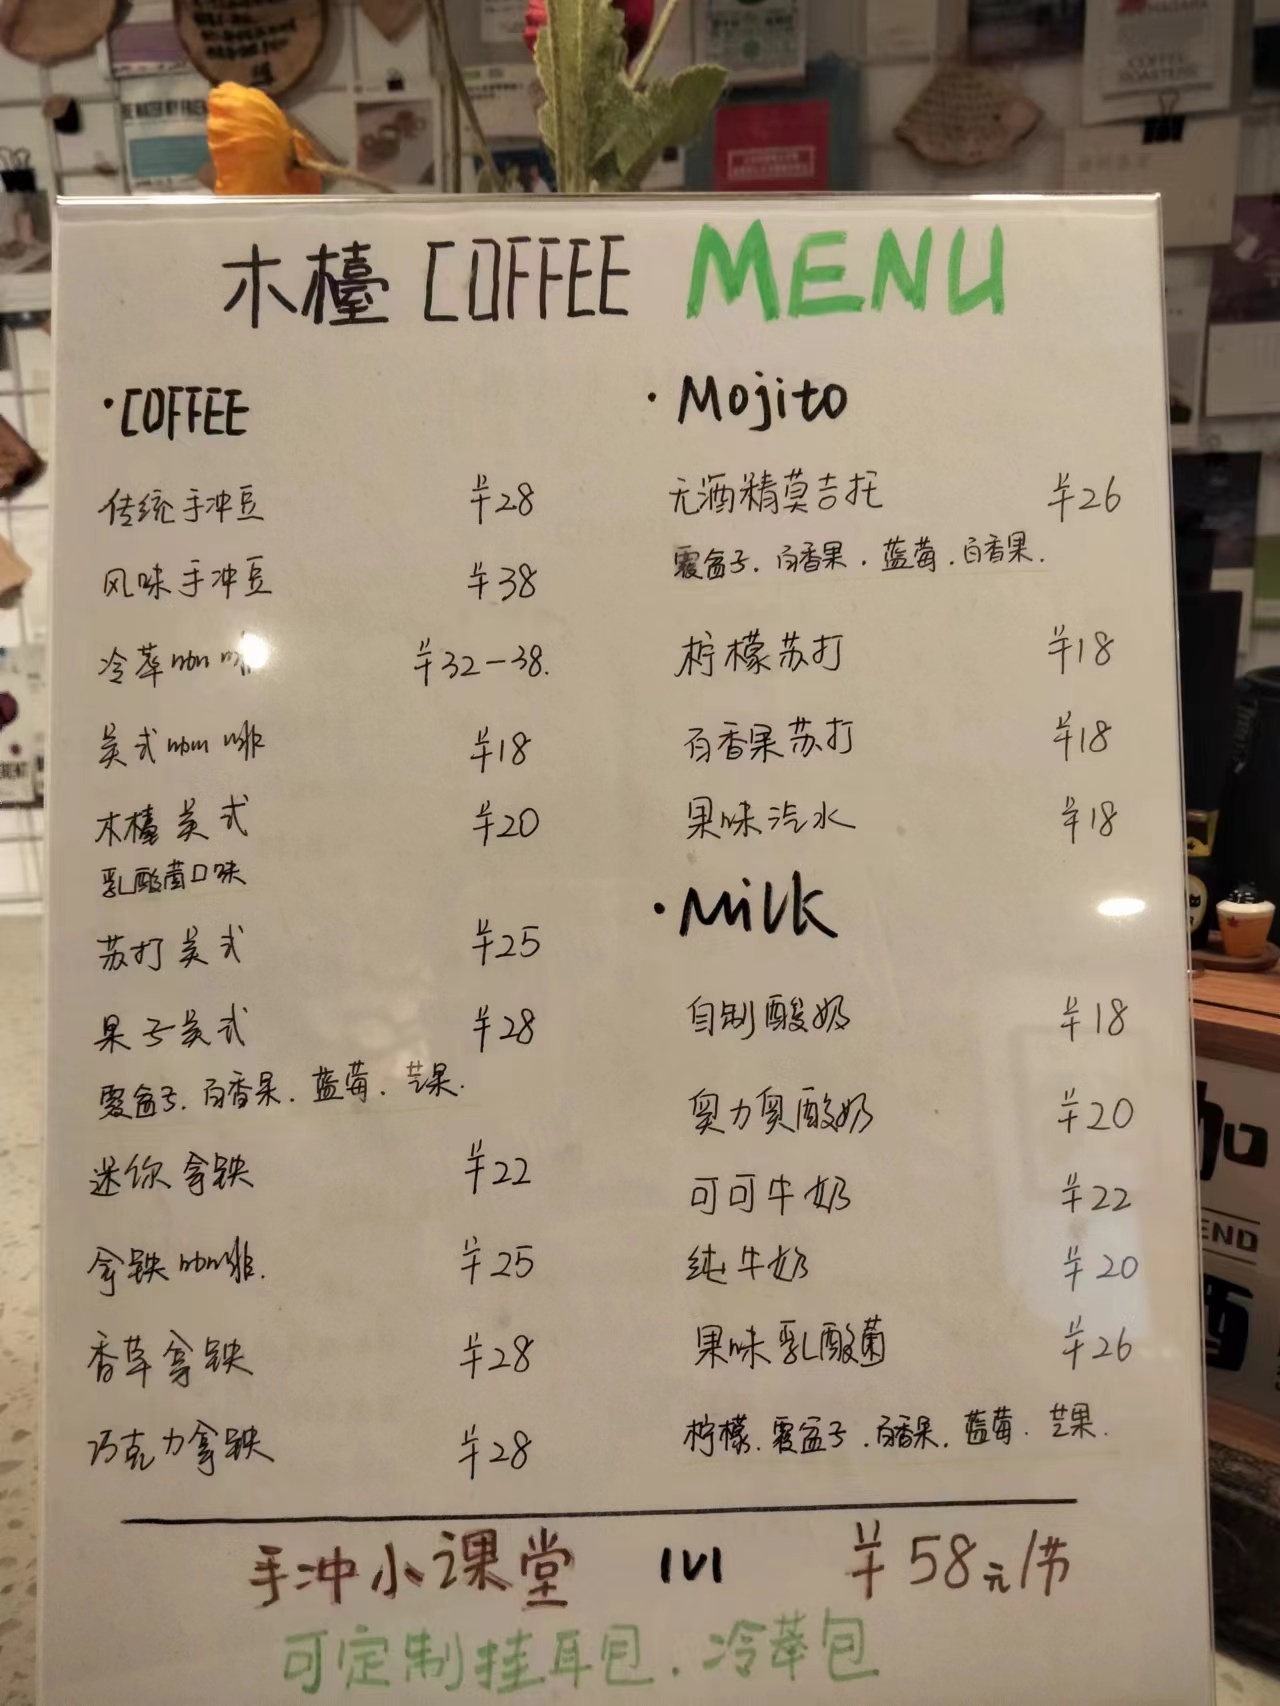 木檯 COFFEE MENU
·COFFEE
传统手冲豆 ¥28
风味手冲豆 ¥38
冷萃咖啡 ¥32-38.
美式咖啡 ¥18
木檯美式 ¥20
乳酸菌口味
苏打美式 ¥25
果子美式 ¥28
覆盆子.百香果.蓝莓.芒果.
迷你拿铁 ¥22
拿铁咖啡. ¥25
香草拿铁 ¥28
巧克力拿铁 ¥28
·Mojito
无酒精莫吉托 ¥26
覆盆子.百香果.蓝莓.百香果.
柠檬苏打 ¥18
百香果苏打 ¥18
果味汽水 ¥18
·Milk
自制酸奶 ¥18
奥力奥酸奶 ¥20
可可牛奶 ¥22
纯牛奶 ¥20
果味乳酸菌 ¥26
柠檬.覆盆子.百香果.蓝莓.芒果.
手冲小课堂 1V1 ¥58元/节
可定制挂耳包.冷萃包
COFFEE
咖
END
酒